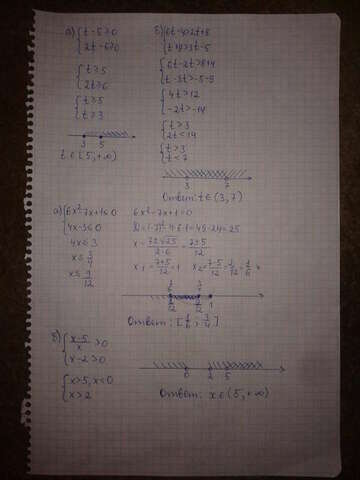 а) { t-5≥0
2t-6≥0
{ t≥5
2t≥6
{ t≥5
t≥3
3 5
t∈(5,+∞)
б) { 6t-4>2t+8
t+9>3t-5
{ 6t-2t>8+4
t-3t>-5-9
{ 4t>12
-2t>-14
{ t>3
2t<14
{ t>3
t<7
3 7
Ответ: t∈(3,7)
а) { 6x²-7x+1≤0
4x-3≤0
4x≤3
x≤3/4
x≤9/12
6x²-7x+1=0
D=(-7)²-4·6·1=49-24=25
x=7±√25/2·6=7±5/12
x₁=7+5/12=1 x₂=7-5/12=2/12=1/6
1/6 3/4
2/12 9/12 1
Ответ: [1/6; 3/4]
б) { x-5/x>0
x-2>0
{ x>5, x<0
x>2
0 2 5
Ответ: x∈(5,+∞)